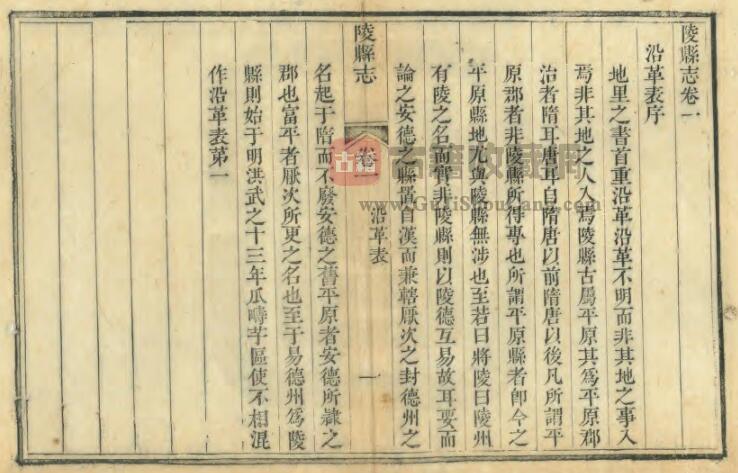 陵縣志卷一
沿革表序
地里之書首重沿革沿革不明而非其地之事入
焉非其地之人入焉陵縣古屬平原其爲平原郡
治者隋耳唐耳自隋唐以前隋唐以後凡所謂平
原郡者非陵縣所得專也所謂平原縣者卽今之
平原縣地尤與陵縣無涉也至若曰將陵曰陵州
有陵之名而實非陵縣則以陵德互易故耳要而
論之安德之縣置自漢而兼轄厭次之封德州之
陵縣志
卷一
沿革表
一
名起于隋而不廢安德之舊平原者安德所隸之
郡也富平者厭次所更之名也至于易德州爲陵
縣則始于明洪武之十三年瓜疇芋區使不相混
作沿革表第一
古籍
古籍收藏网
www.GujiShouCang.com